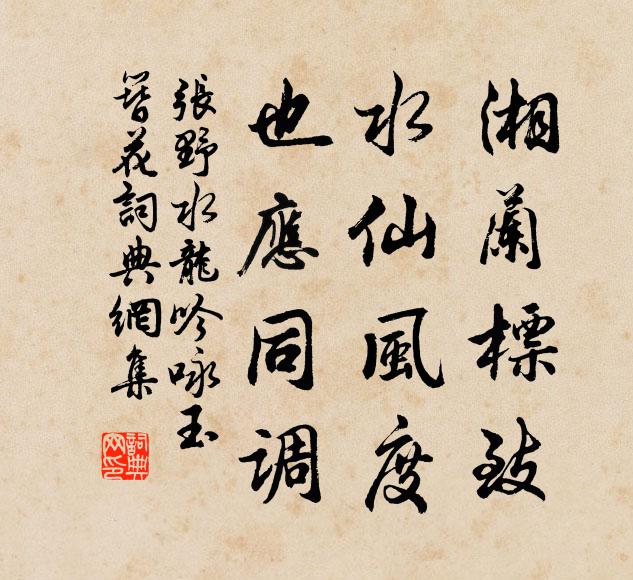 湘蘭標致
水仙風度
也應同調
張野水龍吟咏玉
簪花詞典網集
詞典网印